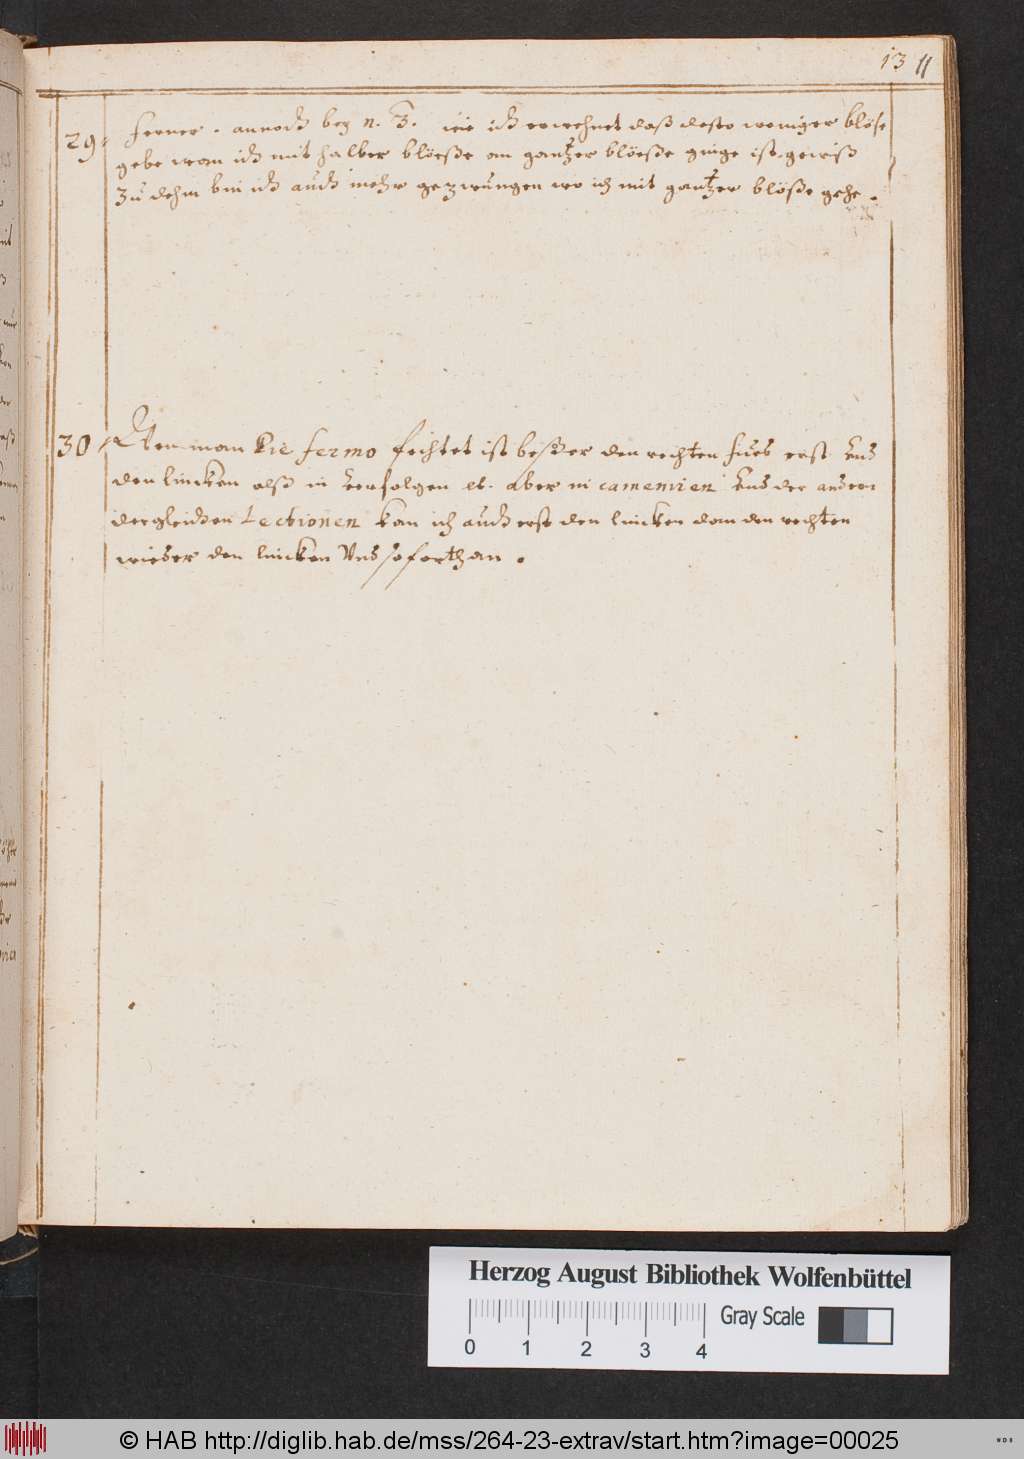 13 11
29. ferner. annoch bey n. 3. wie ich erwehnet daß desto weniger blöse
gebe wan ich mit halber blöesße an gantzer blöesße ginge ist gewiß
Zu dehm bin ich auch mehr gezwungen wo ich mit gantzer blöße gehe.
30 Wen man Pie fermo fechtet ist beßer den rechten fues erst und
den lincken alß in verfolgen et. aber in camemien und der andern
dergleichen Lectionen kan ich auch erst den lincken dan den rechten
wieder den lincken Und so forth an.
Herzog August Bibliothek Wolfenbüttel
0 1 2 3 4
Gray Scale
© HAB http://diglib.hab.de/mss/264-23-extrav/start.htm?image=00025